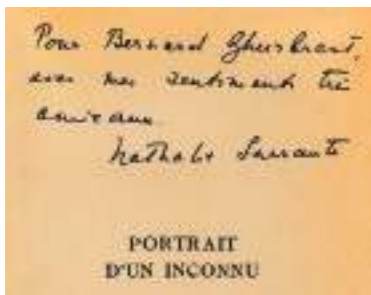 Pour Bernard Gheerbrant,
avec mes sentiments très
amicaux
Nathalie Sarraute
PORTRAIT
D'UN INCONNU